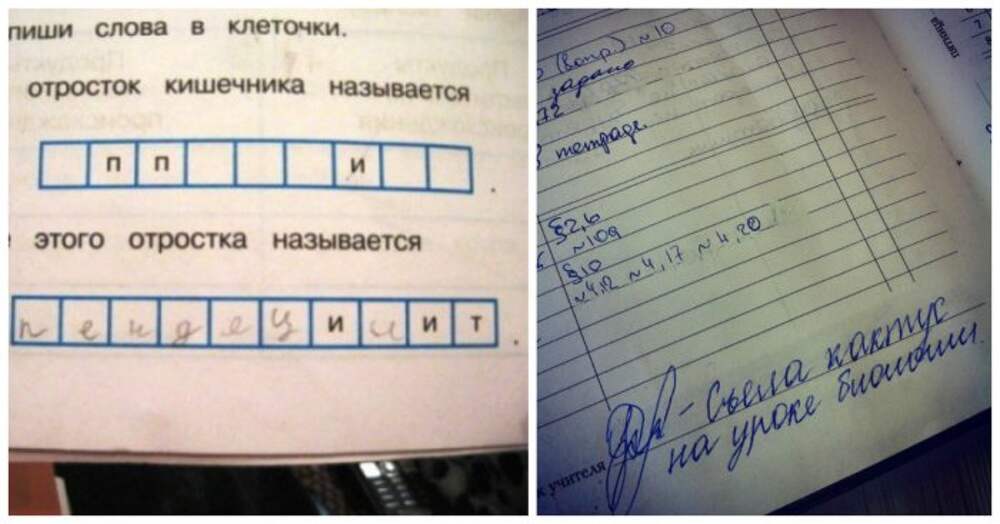 пиши слова в клеточки.
отросток кишечника называется
п п и .
е этого отростка называется
п е н д е ц и ц и т .
(вопр.) №10
72
тетради
§2,6
№109
§10
№4,12 №4,17 №4,20
- Съела кактус
на уроке биологии.
к учителя
пятница